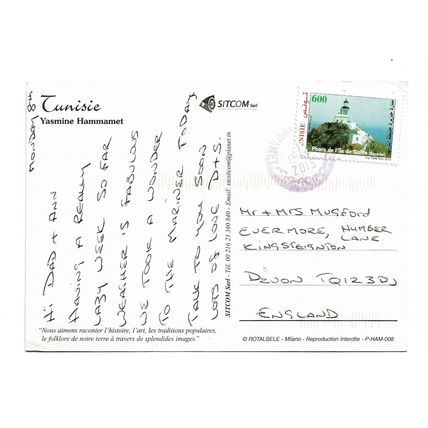 Tunisie
Yasmine Hammamet
MONDAY 8TH
HI DAD + ANN
HAVING A REALLY
LAZY WEEK SO FAR
WEATHER IS FABULOUS
WE TOOK A WONDER
TO THE MARINER TODAY
TALK TO YOU SOON
LOTS OF LOVE D+S.
"Nous aimons raconter l'histoire, l'art, les traditions populaires,
le folklore de notre terre à travers de splendides images."
SITCOM Sarl
SITCOM Sarl - Tél. 00 216 23 360 840 - Email: stesitcom@planet.tn
600
TUNISIE
Phare de l'île de
2015
MR + MRS MUGFORD
EVERMORE, HUMBER
LANE
KINGSTEIGNTON
DEVON TQ12 3DJ
ENGLAND
© ROTALSELE - Milano - Reproduction Interdite - P-HAM-008